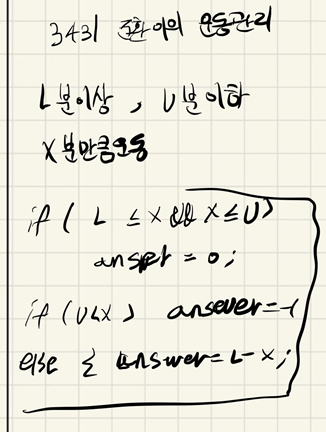 3431 준환이의 운동관리
L분이상 , U분이하
X분만큼운동
if ( L ≤ X && X ≤ U )
answer = 0;
if (U<X) answer=-1
else { answer= L-X;